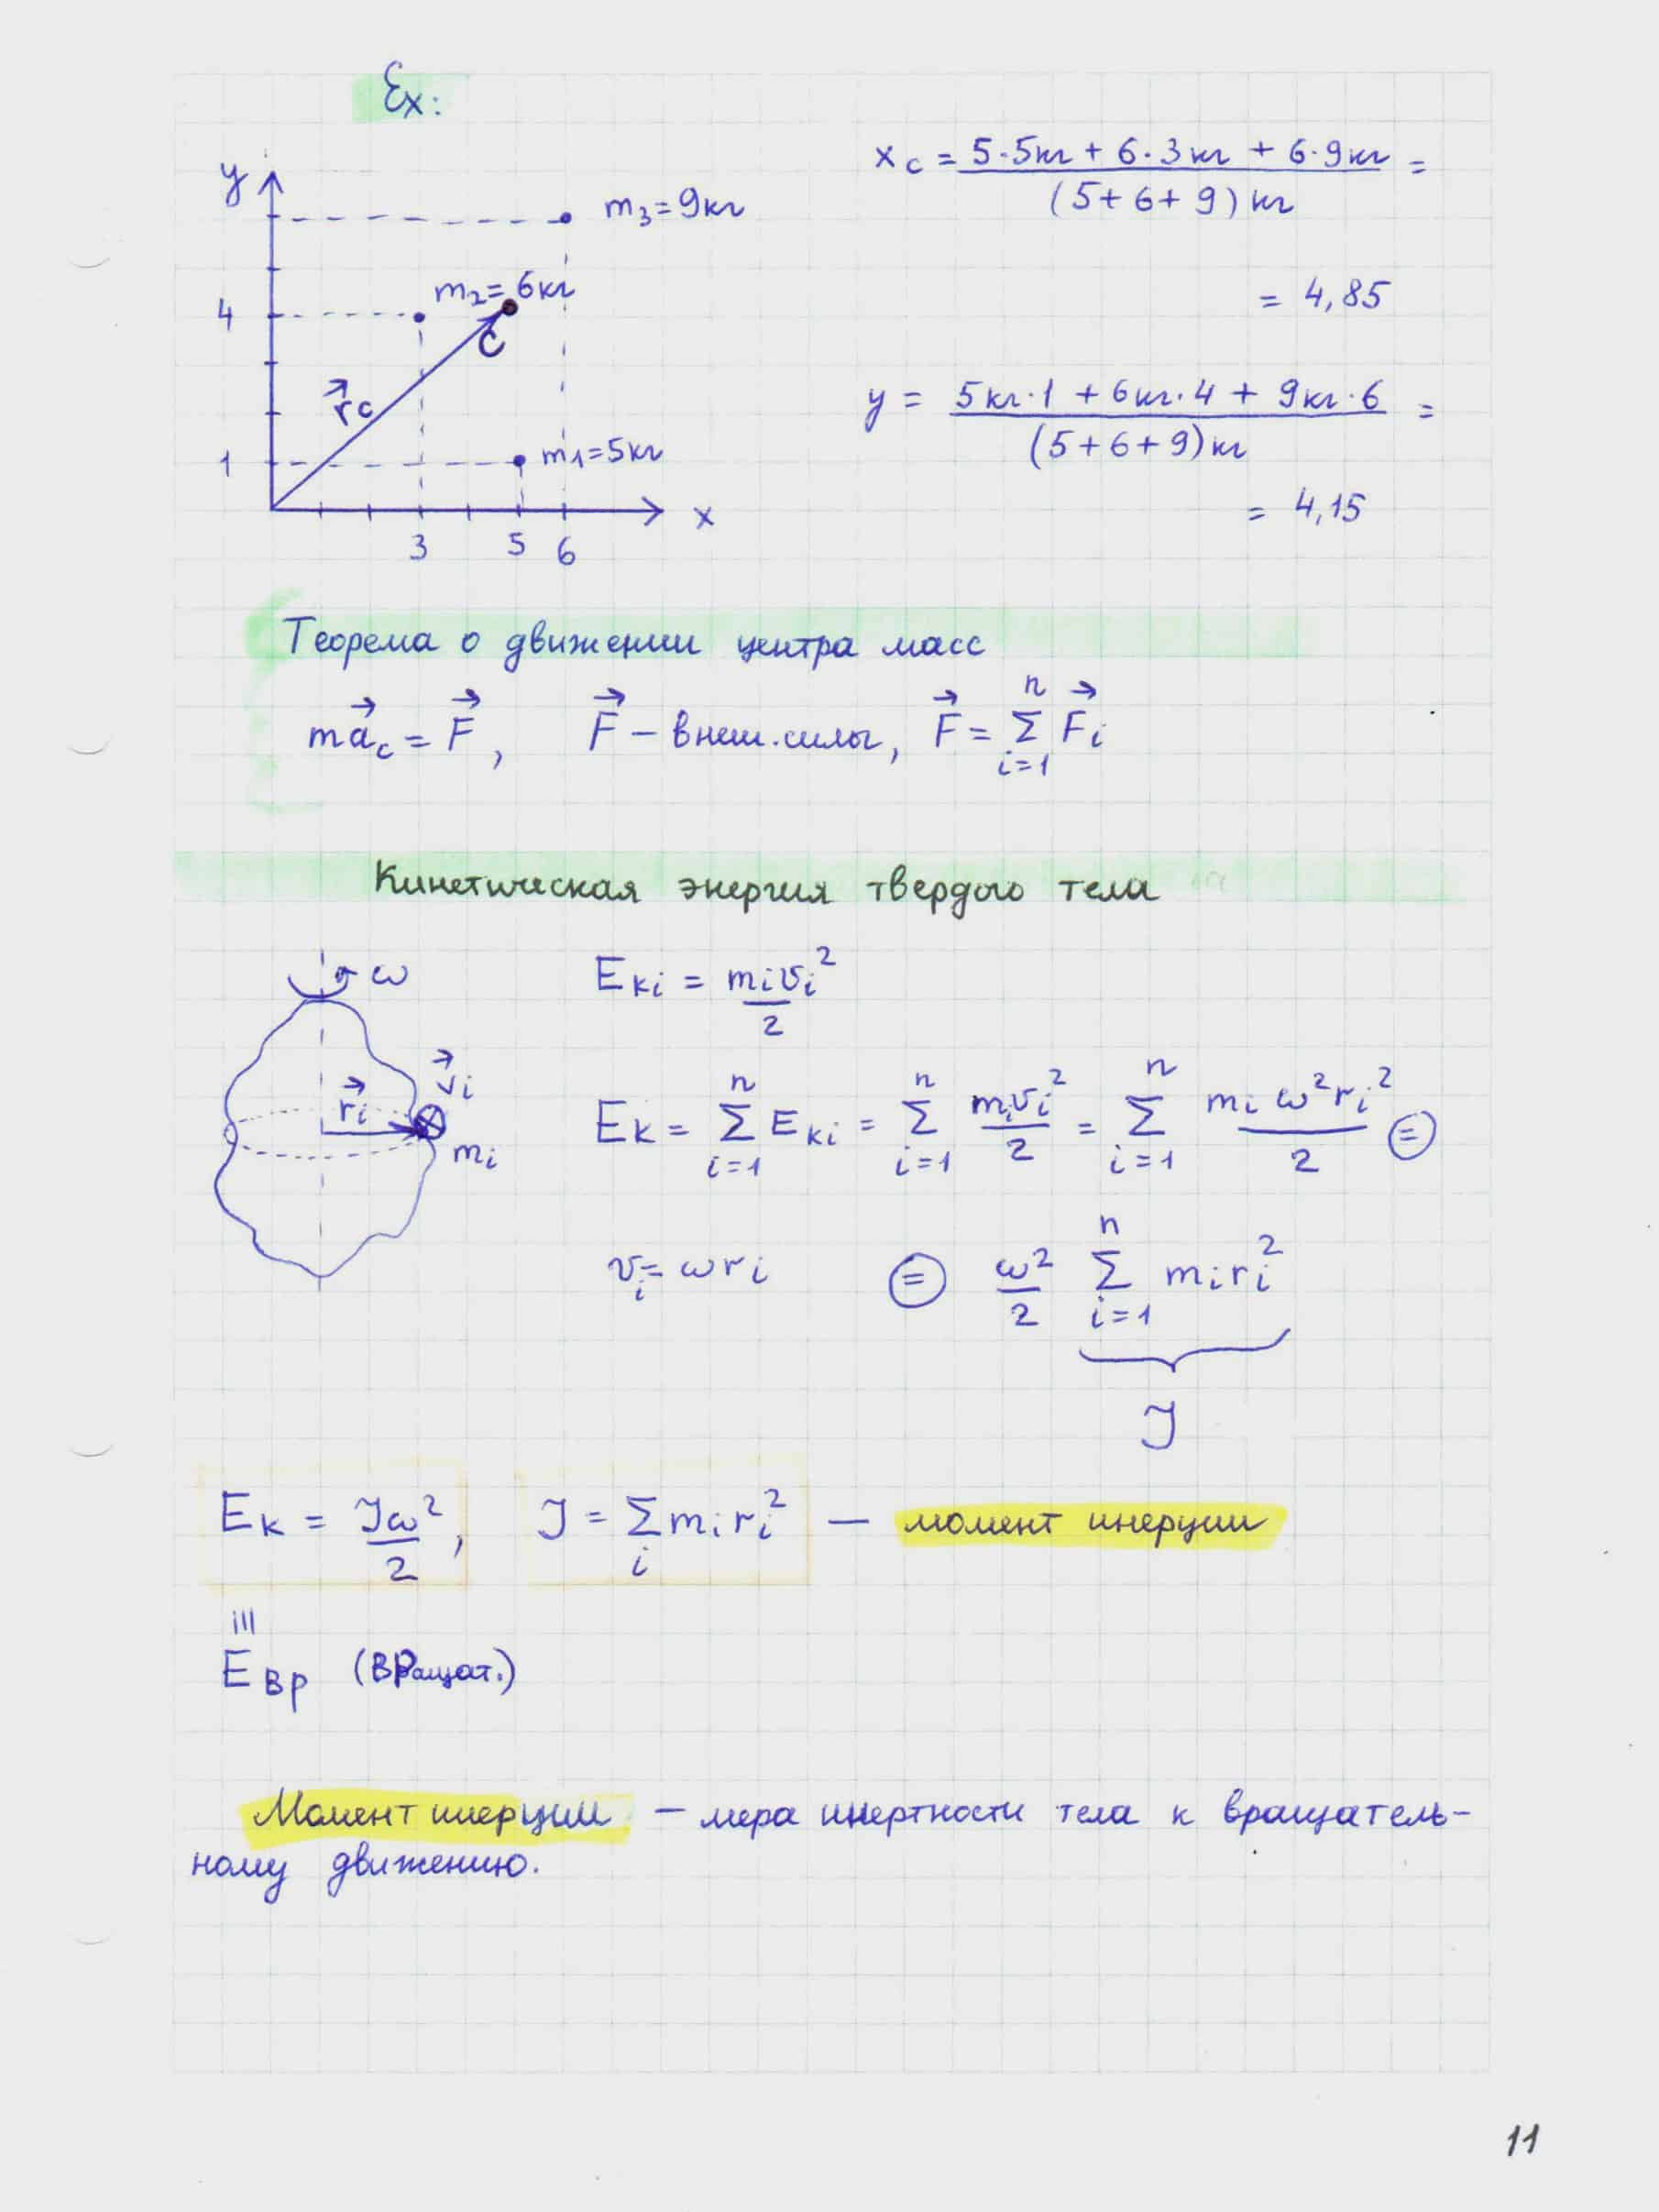 Ex:
y
m₃=9кг
m₂=6кг
4
C
r⃗c
1
m₁=5кг
x
3 5 6
xc = (5·5кг + 6·3кг + 6·9кг)/((5+6+9)кг) =
= 4,85
y = (5кг·1 + 6кг·4 + 9кг·6)/((5+6+9)кг) =
= 4,15
Теорема о движении центра масс
ma⃗c = F⃗, F⃗ – внеш. силы, F⃗ = Σ_{i=1}^{n} F⃗i
Кинетическая энергия твердого тела
ω
v⃗i
r⃗i
mi
Eкi = mivi²/2
Eк = Σ_{i=1}^{n} Eкi = Σ_{i=1}^{n} mivi²/2 = Σ_{i=1}^{n} mi ω²ri²/2 ⊜
vi = ωri ⊜ ω²/2 Σ_{i=1}^{n} miri²
J
Eк = Jω²/2, J = Σ_i miri² — момент инерции
≡
Eвр (вращат.)
Момент инерции – мера инертности тела к вращатель-
ному движению.
11